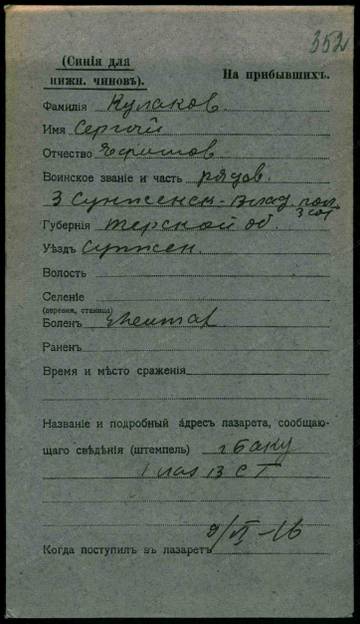 352
(Синія для
нижн. чиновъ).
На прибывшихъ.
Фамилія Кулаков.
Имя Сергѣй
Отчество Ефимов
Воинское званіе и часть рядов.
3 Сунженск-Влад. пол.
3 сот
Губернія Терской об.
Уѣздъ Сунжен.
Волость
Селеніе
(деревня, станица)
Боленъ
Раненъ
Время и мѣсто сраженія
Названіе и подробный адресъ лазарета, сообщаю-
щаго свѣдѣнія (штемпель) г Баку
1 лаз В С Г
9/VI-16
Когда поступилъ въ лазаретъ